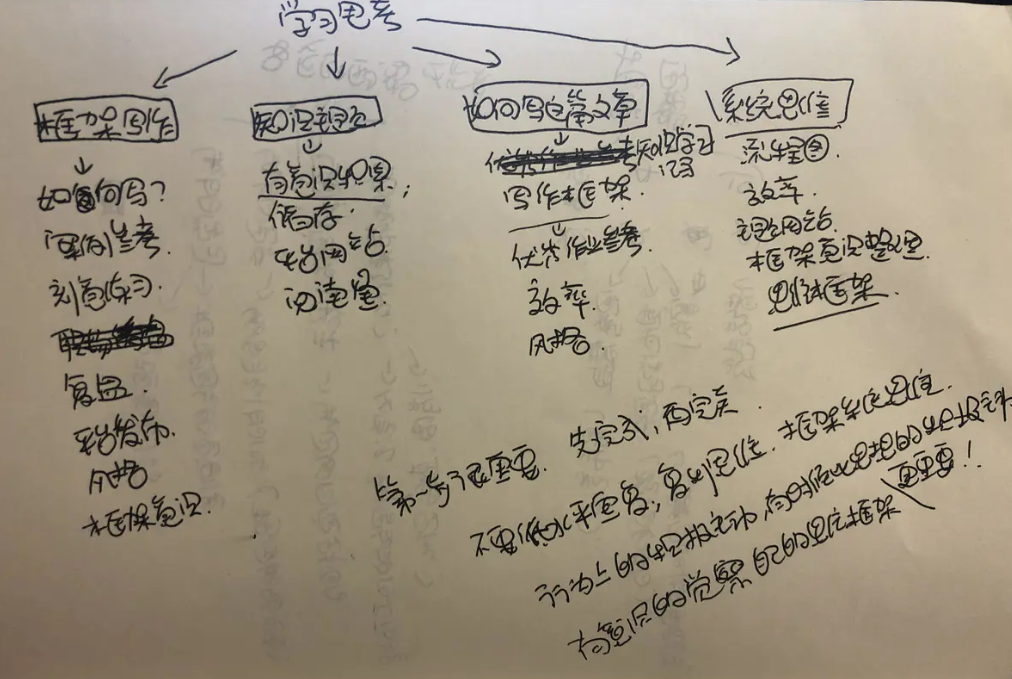 学习思考
框架写作
如何写?
案例参考.
刻意练习.
复盘.
平台发布.
风格
框架意识.
知识管理
有意识积累;
储存.
平台网站
阅读量
如何写自己文章
知识学习
写作框架.
优秀作业参考.
效率.
风格.
系统思维
流程图.
效率.
框架意识整理.
思维框架.
第一步了很重要. 先完成,再完美.
不要低水平重复,复利思维.框架系统思维.
行为上的积极主动,有时候比思想的积极主动
更重要!
有意识的觉察自己的思维框架